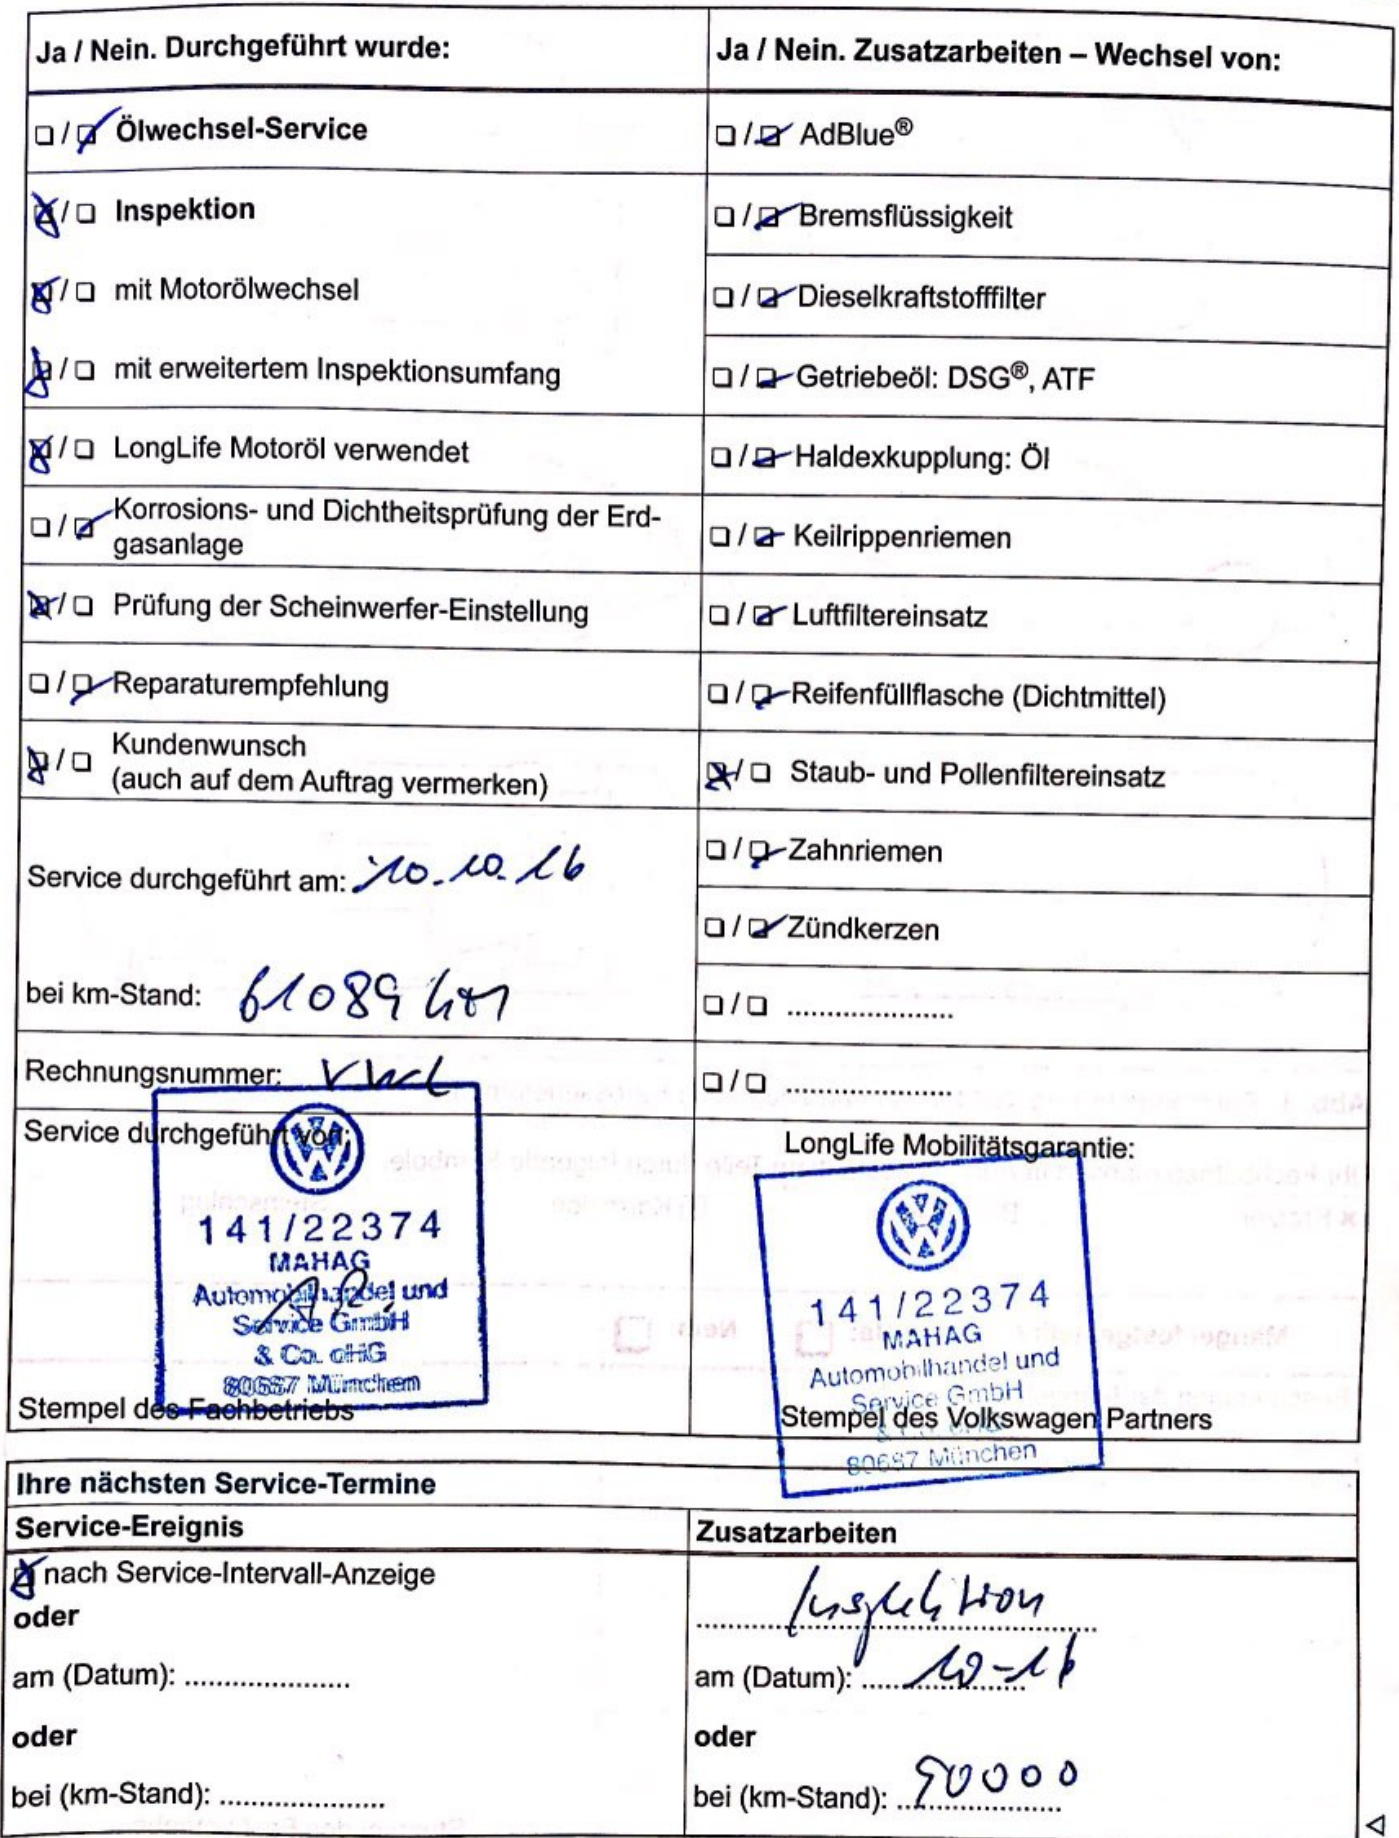 Ja / Nein. Durchgeführt wurde:
☐ / ☑ Ölwechsel-Service
☒ / ☐ Inspektion
☒ / ☐ mit Motorölwechsel
☒ / ☐ mit erweitertem Inspektionsumfang
☒ / ☐ LongLife Motoröl verwendet
☐ / ☑ Korrosions- und Dichtheitsprüfung der Erd-
gasanlage
☒ / ☐ Prüfung der Scheinwerfer-Einstellung
☐ / ☑ Reparaturempfehlung
☒ / ☐ Kundenwunsch
(auch auf dem Auftrag vermerken)
Service durchgeführt am: 10.10.16
bei km-Stand: 61089 km
Rechnungsnummer:
Service durchgeführt von:
141/22374
MAHAG
Automobilhandel und
Service GmbH
& Co. oHG
80687 München
Stempel des Fachbetriebs
Ja / Nein. Zusatzarbeiten – Wechsel von:
☐ / ☑ AdBlue®
☐ / ☑ Bremsflüssigkeit
☐ / ☑ Dieselkraftstofffilter
☐ / ☑ Getriebeöl: DSG®, ATF
☐ / ☑ Haldexkupplung: Öl
☐ / ☑ Keilrippenriemen
☐ / ☑ Luftfiltereinsatz
☐ / ☑ Reifenfüllflasche (Dichtmittel)
☒ / ☐ Staub- und Pollenfiltereinsatz
☐ / ☑ Zahnriemen
☐ / ☑ Zündkerzen
☐ / ☐ ......................
☐ / ☐ ......................
LongLife Mobilitätsgarantie:
141/22374
MAHAG
Automobilhandel und
Service GmbH
& Co. oHG
80687 München
Stempel des Volkswagen Partners
Ihre nächsten Service-Termine
Service-Ereignis
☒ nach Service-Intervall-Anzeige
oder
am (Datum): ......................
oder
bei (km-Stand): ......................
Zusatzarbeiten
Inspektion
am (Datum): 10-16
oder
bei (km-Stand): 90000